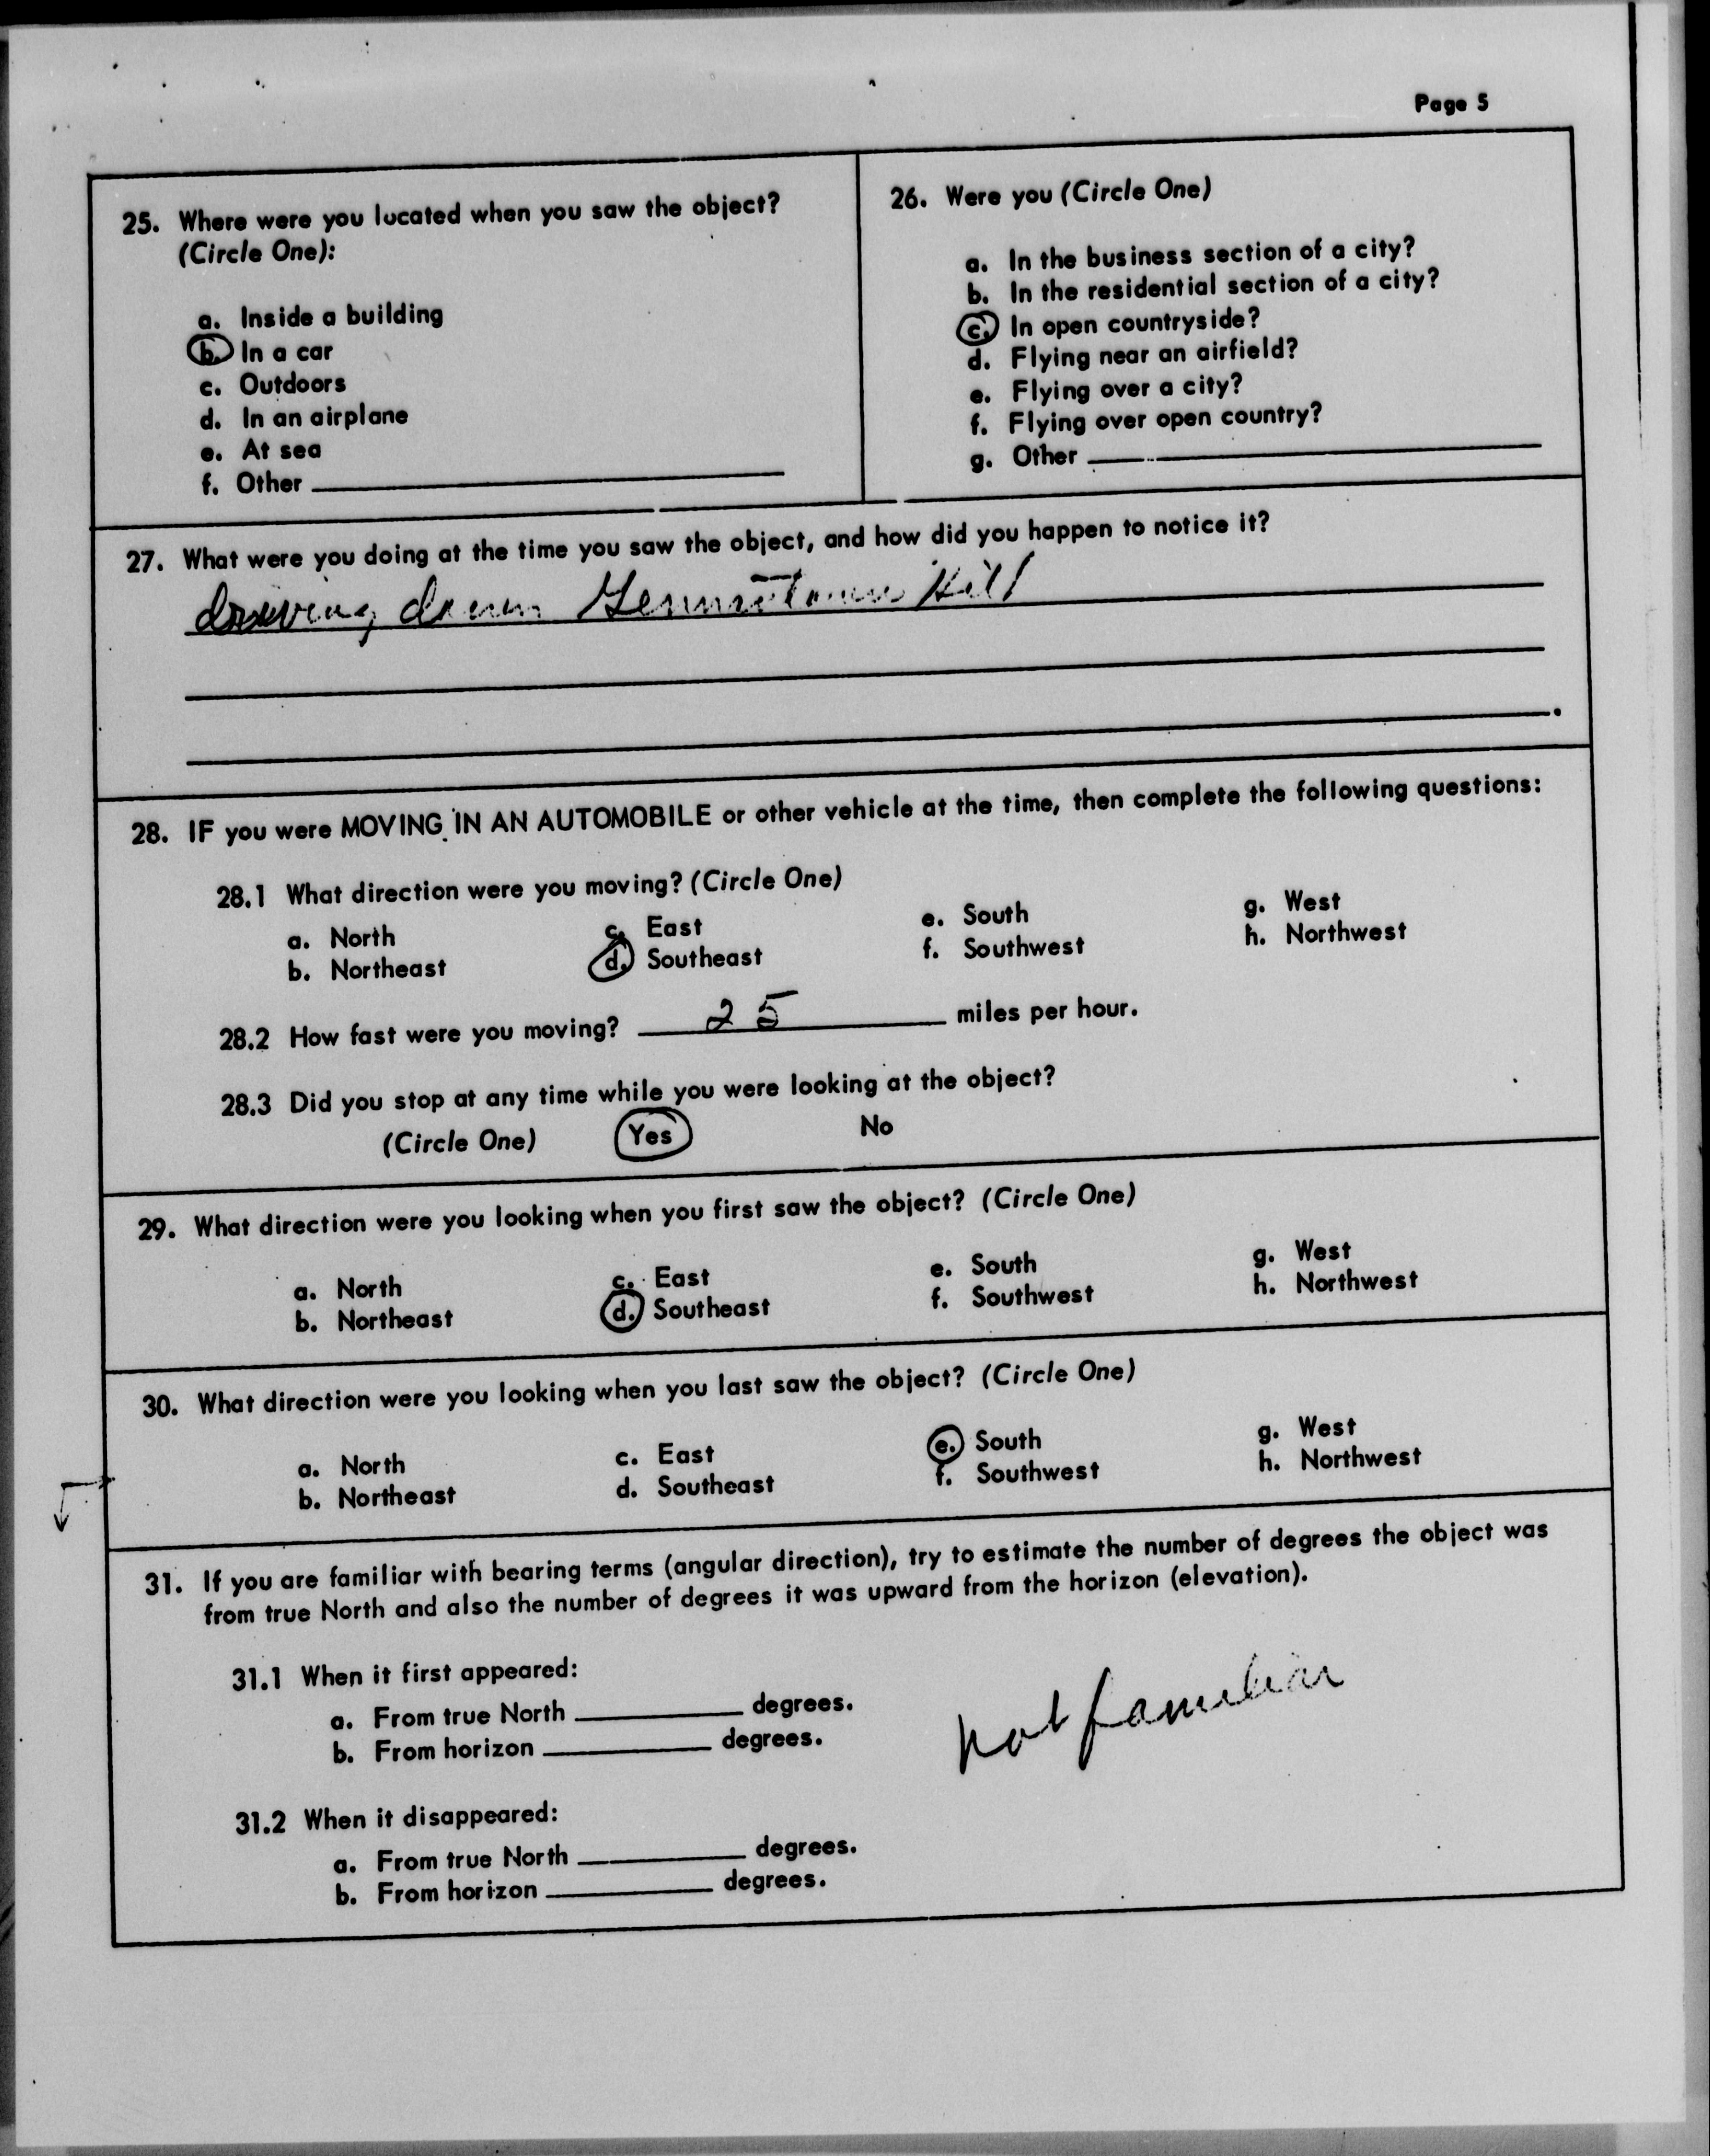 Page 5
25. Where were you located when you saw the object?
(Circle One):
a. Inside a building
b. In a car
c. Outdoors
d. In an airplane
e. At sea
f. Other
26. Were you (Circle One)
a. In the business section of a city?
b. In the residential section of a city?
c. In open countryside?
d. Flying near an airfield?
e. Flying over a city?
f. Flying over open country?
g. Other
27. What were you doing at the time you saw the object, and how did you happen to notice it?
driving down Hill
28. IF you were MOVING IN AN AUTOMOBILE or other vehicle at the time, then complete the following questions:
28.1 What direction were you moving? (Circle One)
a. North c. East e. South g. West
b. Northeast d. Southeast f. Southwest h. Northwest
28.2 How fast were you moving? 25 miles per hour.
28.3 Did you stop at any time while you were looking at the object?
(Circle One) Yes No
29. What direction were you looking when you first saw the object? (Circle One)
a. North c. East e. South g. West
b. Northeast d. Southeast f. Southwest h. Northwest
30. What direction were you looking when you last saw the object? (Circle One)
a. North c. East e. South g. West
b. Northeast d. Southeast f. Southwest h. Northwest
31. If you are familiar with bearing terms (angular direction), try to estimate the number of degrees the object was
from true North and also the number of degrees it was upward from the horizon (elevation).
31.1 When it first appeared:
a. From true North degrees.
b. From horizon degrees.
not familiar
31.2 When it disappeared:
a. From true North degrees.
b. From horizon degrees.